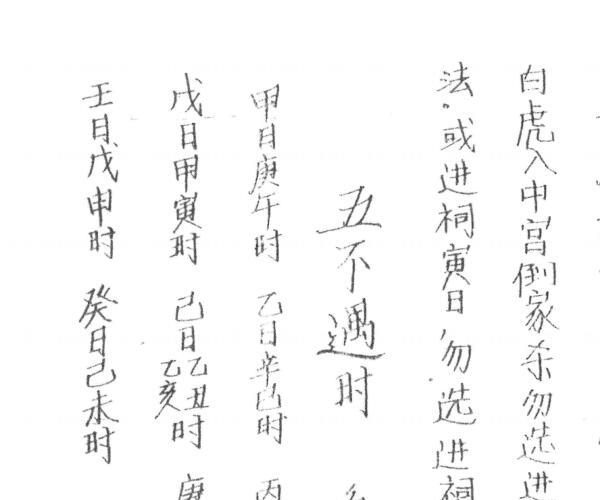 白虎入中宫倒家杀勿选进
法。或进祠寅日，勿选进祠
五不遇时
甲日庚午时 乙日辛巳时 丙
戊日甲寅时 己日乙丑乙亥时 庚
壬日戊申时 癸日己未时